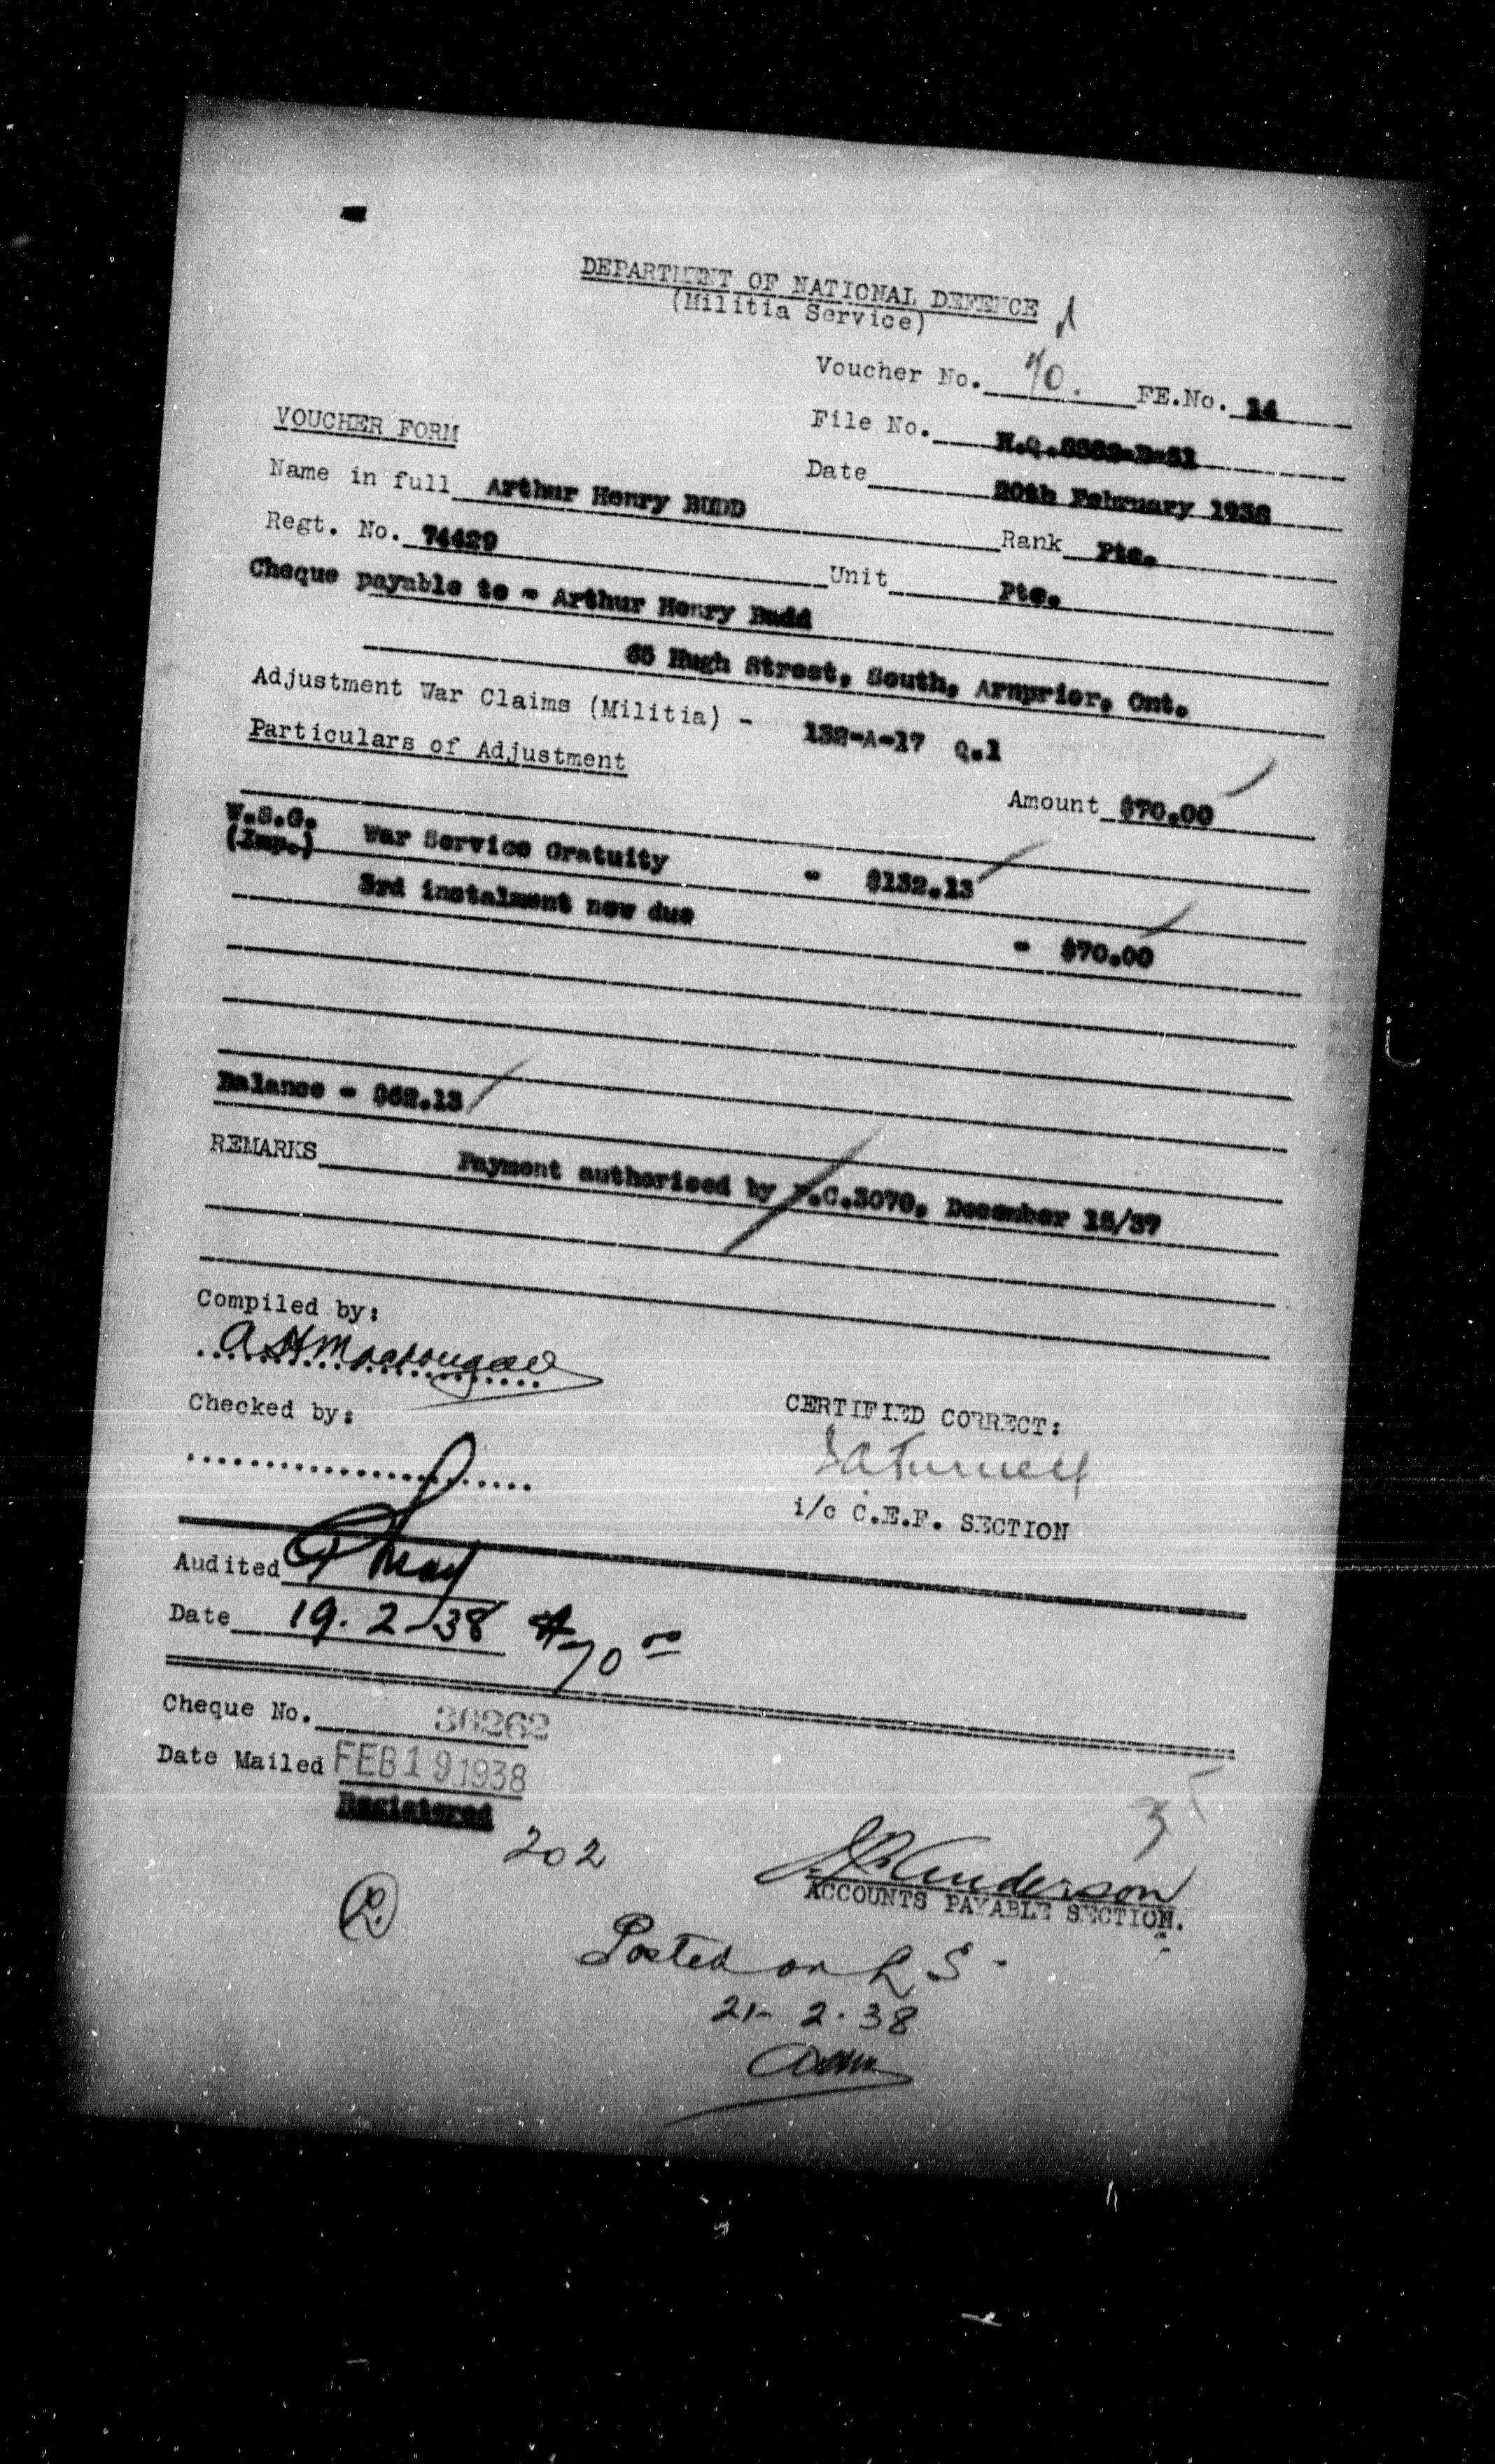 DEPARTMENT OF NATIONAL DEFENCE
(Militia Service)
Voucher No. 70. FE.No. 14
File No.
VOUCHER FORM
Date 20th February 1938
Name in full Arthur Henry BUDD
Rank Pte.
Regt. No. 74429
Unit Pte.
Cheque payable to - Arthur Henry Budd
65 Hugh Street, South, Arnprior, Ont.
Adjustment War Claims (Militia) - 132-A-17 Q.1
Particulars of Adjustment
Amount $70.00
W.S.G.
(Imp.) War Service Gratuity - $132.13
3rd instalment now due - $70.00
Balance - $62.13
REMARKS Payment authorised by P.C.3070, December 15/37
Compiled by:
Checked by:
CERTIFIED CORRECT:
i/c C.E.F. SECTION
Audited
Date 19.2-38 $70 00
Cheque No. 36262
Date Mailed FEB 19 1938
Registered
202
Anderson
ACCOUNTS PAYABLE SECTION.
Posted on L S.
21-2.38